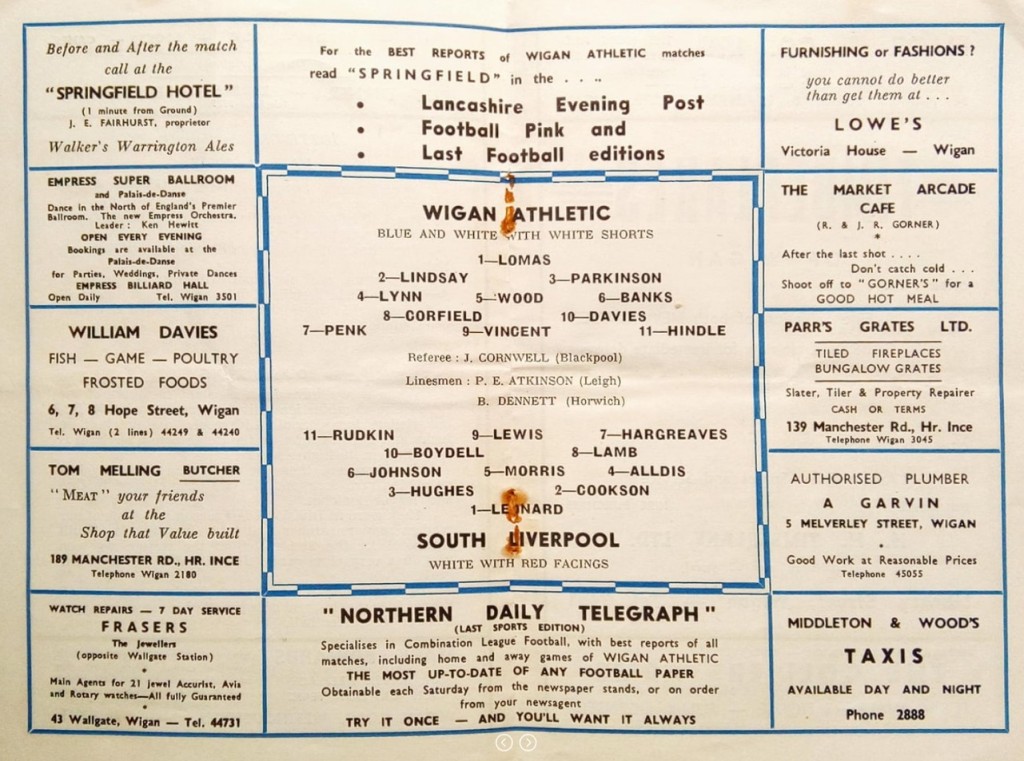 Before and After the match
call at the
"SPRINGFIELD HOTEL"
(1 minute from Ground)
J. E. FAIRHURST, proprietor
Walker's Warrington Ales
For the BEST REPORTS of WIGAN ATHLETIC matches
read "SPRINGFIELD" in the . . . .
• Lancashire Evening Post
• Football Pink and
• Last Football editions
FURNISHING or FASHIONS ?
you cannot do better
than get them at . . .
LOWE'S
Victoria House — Wigan
EMPRESS SUPER BALLROOM
and Palais-de-Danse
Dance in the North of England's Premier
Ballroom. The new Empress Orchestra.
Leader : Ken Hewitt
OPEN EVERY EVENING
Bookings are available at the
Palais-de-Danse
for Parties, Weddings, Private Dances
EMPRESS BILLIARD HALL
Open Daily Tel. Wigan 3501
WILLIAM DAVIES
FISH — GAME — POULTRY
FROSTED FOODS
6, 7, 8 Hope Street, Wigan
Tel. Wigan (2 lines) 44249 & 44240
TOM MELLING BUTCHER
"MEAT" your friends
at the
Shop that Value built
189 MANCHESTER RD., HR. INCE
Telephone Wigan 2180
WATCH REPAIRS — 7 DAY SERVICE
FRASERS
The Jewellers
(opposite Wallgate Station)
*
Main Agents for 21 jewel Accurist, Avia
and Rotary watches—All fully Guaranteed
*
43 Wallgate, Wigan — Tel. 44731
WIGAN ATHLETIC
BLUE AND WHITE WITH WHITE SHORTS
1—LOMAS
2—LINDSAY 3—PARKINSON
4—LYNN 5—WOOD 6—BANKS
8—CORFIELD 10—DAVIES
7—PENK 9—VINCENT 11—HINDLE
Referee : J. CORNWELL (Blackpool)
Linesmen : P. E. ATKINSON (Leigh)
B. DENNETT (Horwich)
11—RUDKIN 9—LEWIS 7—HARGREAVES
10—BOYDELL 8—LAMB
6—JOHNSON 5—MORRIS 4—ALLDIS
3—HUGHES 2—COOKSON
1—LEONARD
SOUTH LIVERPOOL
WHITE WITH RED FACINGS
"NORTHERN DAILY TELEGRAPH"
(LAST SPORTS EDITION)
Specialises in Combination League Football, with best reports of all
matches, including home and away games of WIGAN ATHLETIC
THE MOST UP-TO-DATE OF ANY FOOTBALL PAPER
Obtainable each Saturday from the newspaper stands, or on order
from your newsagent
TRY IT ONCE — AND YOU'LL WANT IT ALWAYS
THE MARKET ARCADE
CAFE
(R. & J. R. GORNER)
*
After the last shot . . . .
Don't catch cold . . .
Shoot off to "GORNER'S" for a
GOOD HOT MEAL
PARR'S GRATES LTD.
TILED FIREPLACES
BUNGALOW GRATES
Slater, Tiler & Property Repairer
CASH OR TERMS
139 Manchester Rd., Hr. Ince
Telephone Wigan 3045
AUTHORISED PLUMBER
A GARVIN
5 MELVERLEY STREET, WIGAN
.
Good Work at Reasonable Prices
Telephone 45055
MIDDLETON & WOOD'S
TAXIS
AVAILABLE DAY AND NIGHT
Phone 2888